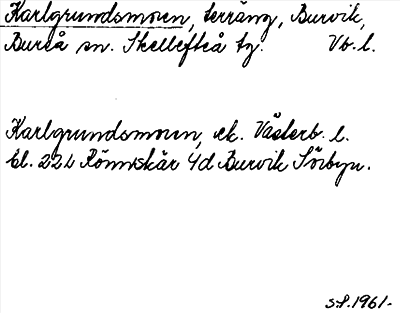 Karlgrundsmoren, terräng, Burvik,
Bureå sn. Skellefteå tg. Vb. l.
Karlgrundsmoren, ek. Västerb. l.
bl. 22L Rönnskär 4d Burvik Sörbyn.
S.P. 1961.